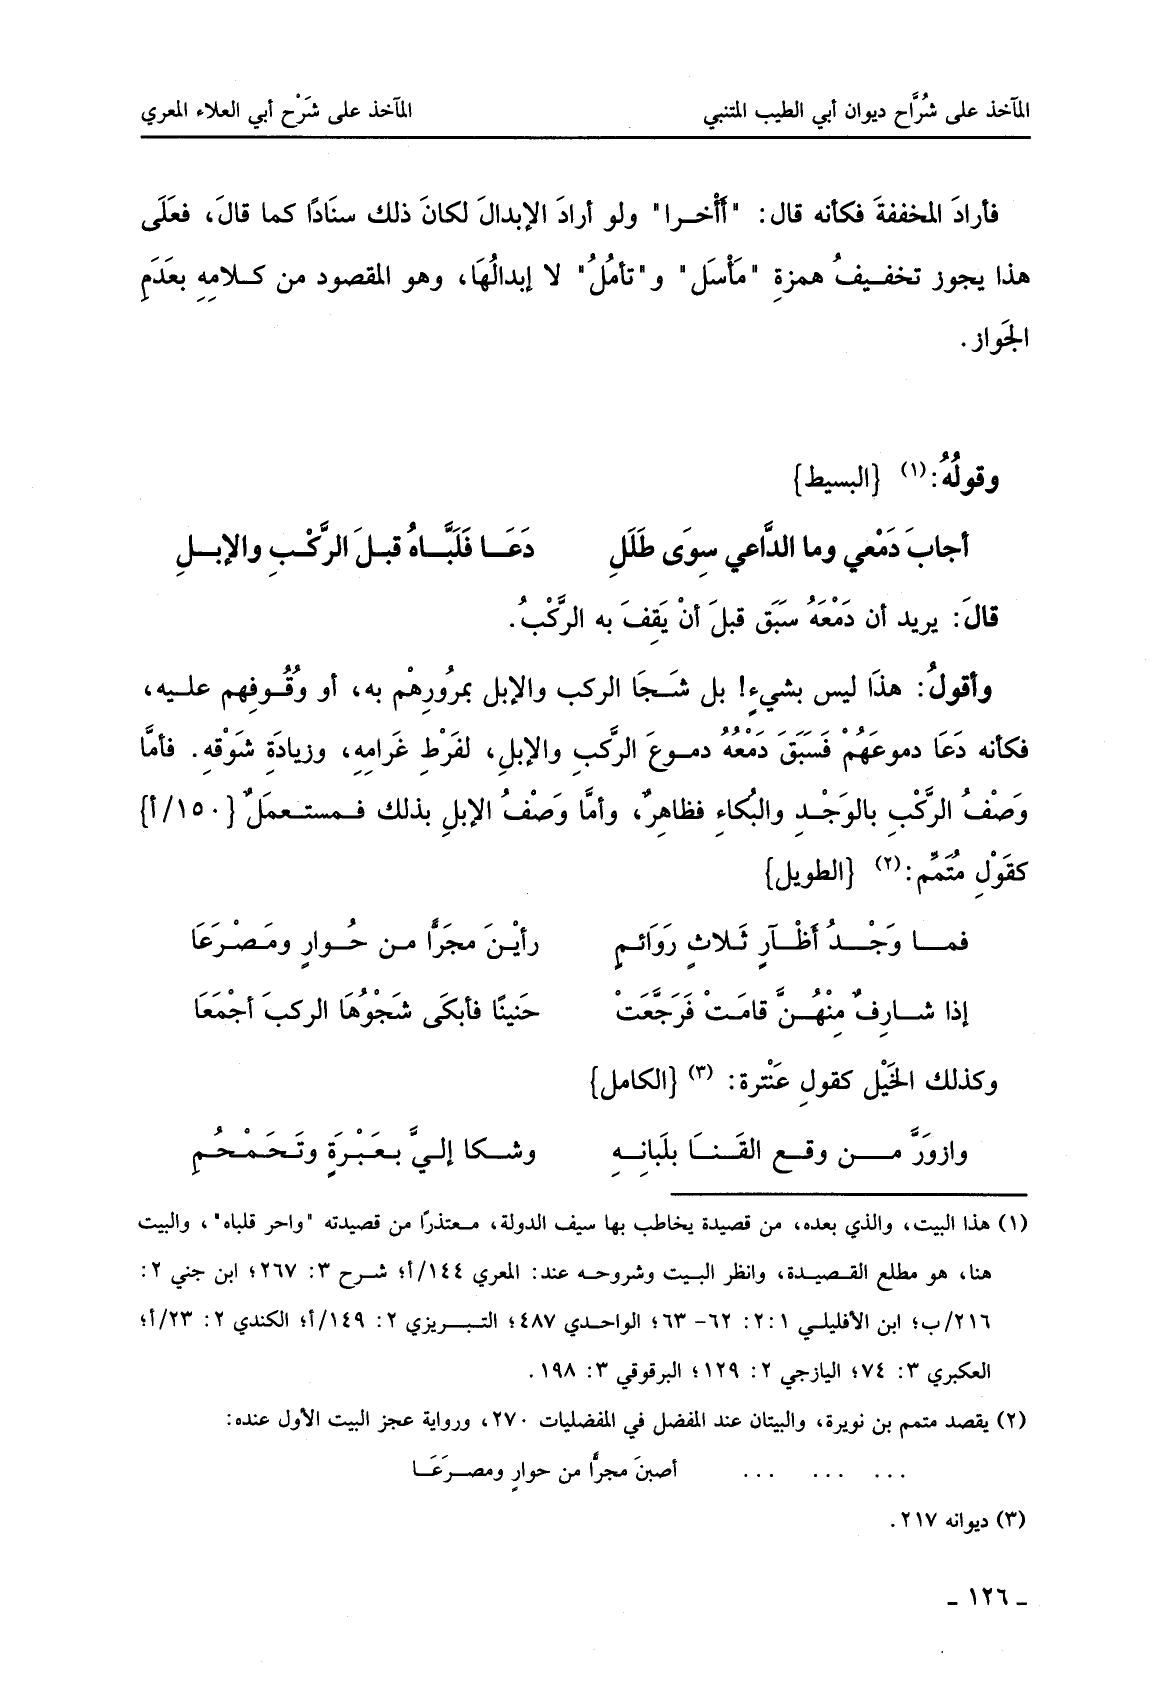 المآخذ على شُرَّاح ديوان أبي الطيب المتنبي المآخذ على شَرْح أبي العلاء المعري
فأرادَ المخففةَ فكأنه قال: "أَأْخرا" ولو أرادَ الإبدالَ لكانَ ذلك سنَادًا كما قالَ، فعَلَى
هذا يجوز تخفيفُ همزةِ "مَأْسَل" و"تأمُلُ" لا إبدالُهَا، وهو المقصود من كلامِهِ بعَدَمِ
الجَواز.
وقولُهُ:(١) {البسيط}
أجابَ دَمْعي وما الدَّاعي سِوَى طَلَلِ دَعَا فَلَبَّاهُ قبلَ الرَّكْبِ والإبلِ
قالَ: يريد أن دَمْعَهُ سَبَقَ قبلَ أنْ يَقِفَ به الرَّكْبُ.
وأقولُ: هذَا ليس بشيءٍ! بل شَجَا الركب والإبل بمرُورِهْم به، أو وُقُوفِهم عليه،
فكأنه دَعَا دموعَهُمْ فَسَبَقَ دَمْعُهُ دموعَ الرَّكبِ والإبلِ، لفَرْطِ غَرامِهِ، وزيادَةِ شَوْقِهِ. فأمَّا
وَصْفُ الرَّكْبِ بالوَجْدِ والبُكاءِ فظاهِرٌ، وأمَّا وَصْفُ الإبلِ بذلك فمستعمَلٌ {١٥٠/أ}
كقَوْلِ مُتَمِّم:(٢) {الطويل}
فما وَجْدُ أَظْآرٍ ثَلاثٍ رَوَائمٍ رأيْنَ مجَرًّا من حُوارٍ ومَصْرَعَا
إذا شارِفٌ مِنْهُنَّ قامَتْ فَرَجَّعَتْ حَنينًا فأبكَى شَجْوُهَا الركبَ أجْمَعَا
وكذلك الخَيْل كقولِ عَنْترة: (٣) {الكامل}
وازورَّ من وقع القَنَا بلَبَانِهِ وشكا إليَّ بعَبْرَةٍ وتَحَمْحُمِ
(١) هذا البيت، والذي بعده، من قصيدة يخاطب بها سيف الدولة، معتذرًا من قصيدته "واحر قلباه"، والبيت
هنا، هو مطلع القصيدة، وانظر البيت وشروحه عند: المعري ١٤٤/أ؛ شرح ٣: ٢٦٧؛ ابن جني ٢:
٢١٦/ب؛ ابن الأفليلي ١:٢: ٦٢- ٦٣؛ الواحدي ٤٨٧؛ التبريزي ٢: ١٤٩/أ؛ الكندي ٢: ٢٣/أ؛
العكبري ٣: ٧٤؛ اليازجي ٢: ١٢٩؛ البرقوقي ٣: ١٩٨.
(٢) يقصد متمم بن نويرة، والبيتان عند المفضل في المفضليات ٢٧٠، ورواية عجز البيت الأول عنده:
... ... ... أصبنَ مجرًّا من حوارٍ ومصرَعَا
(٣) ديوانه ٢١٧.
ـ ١٢٦ ـ